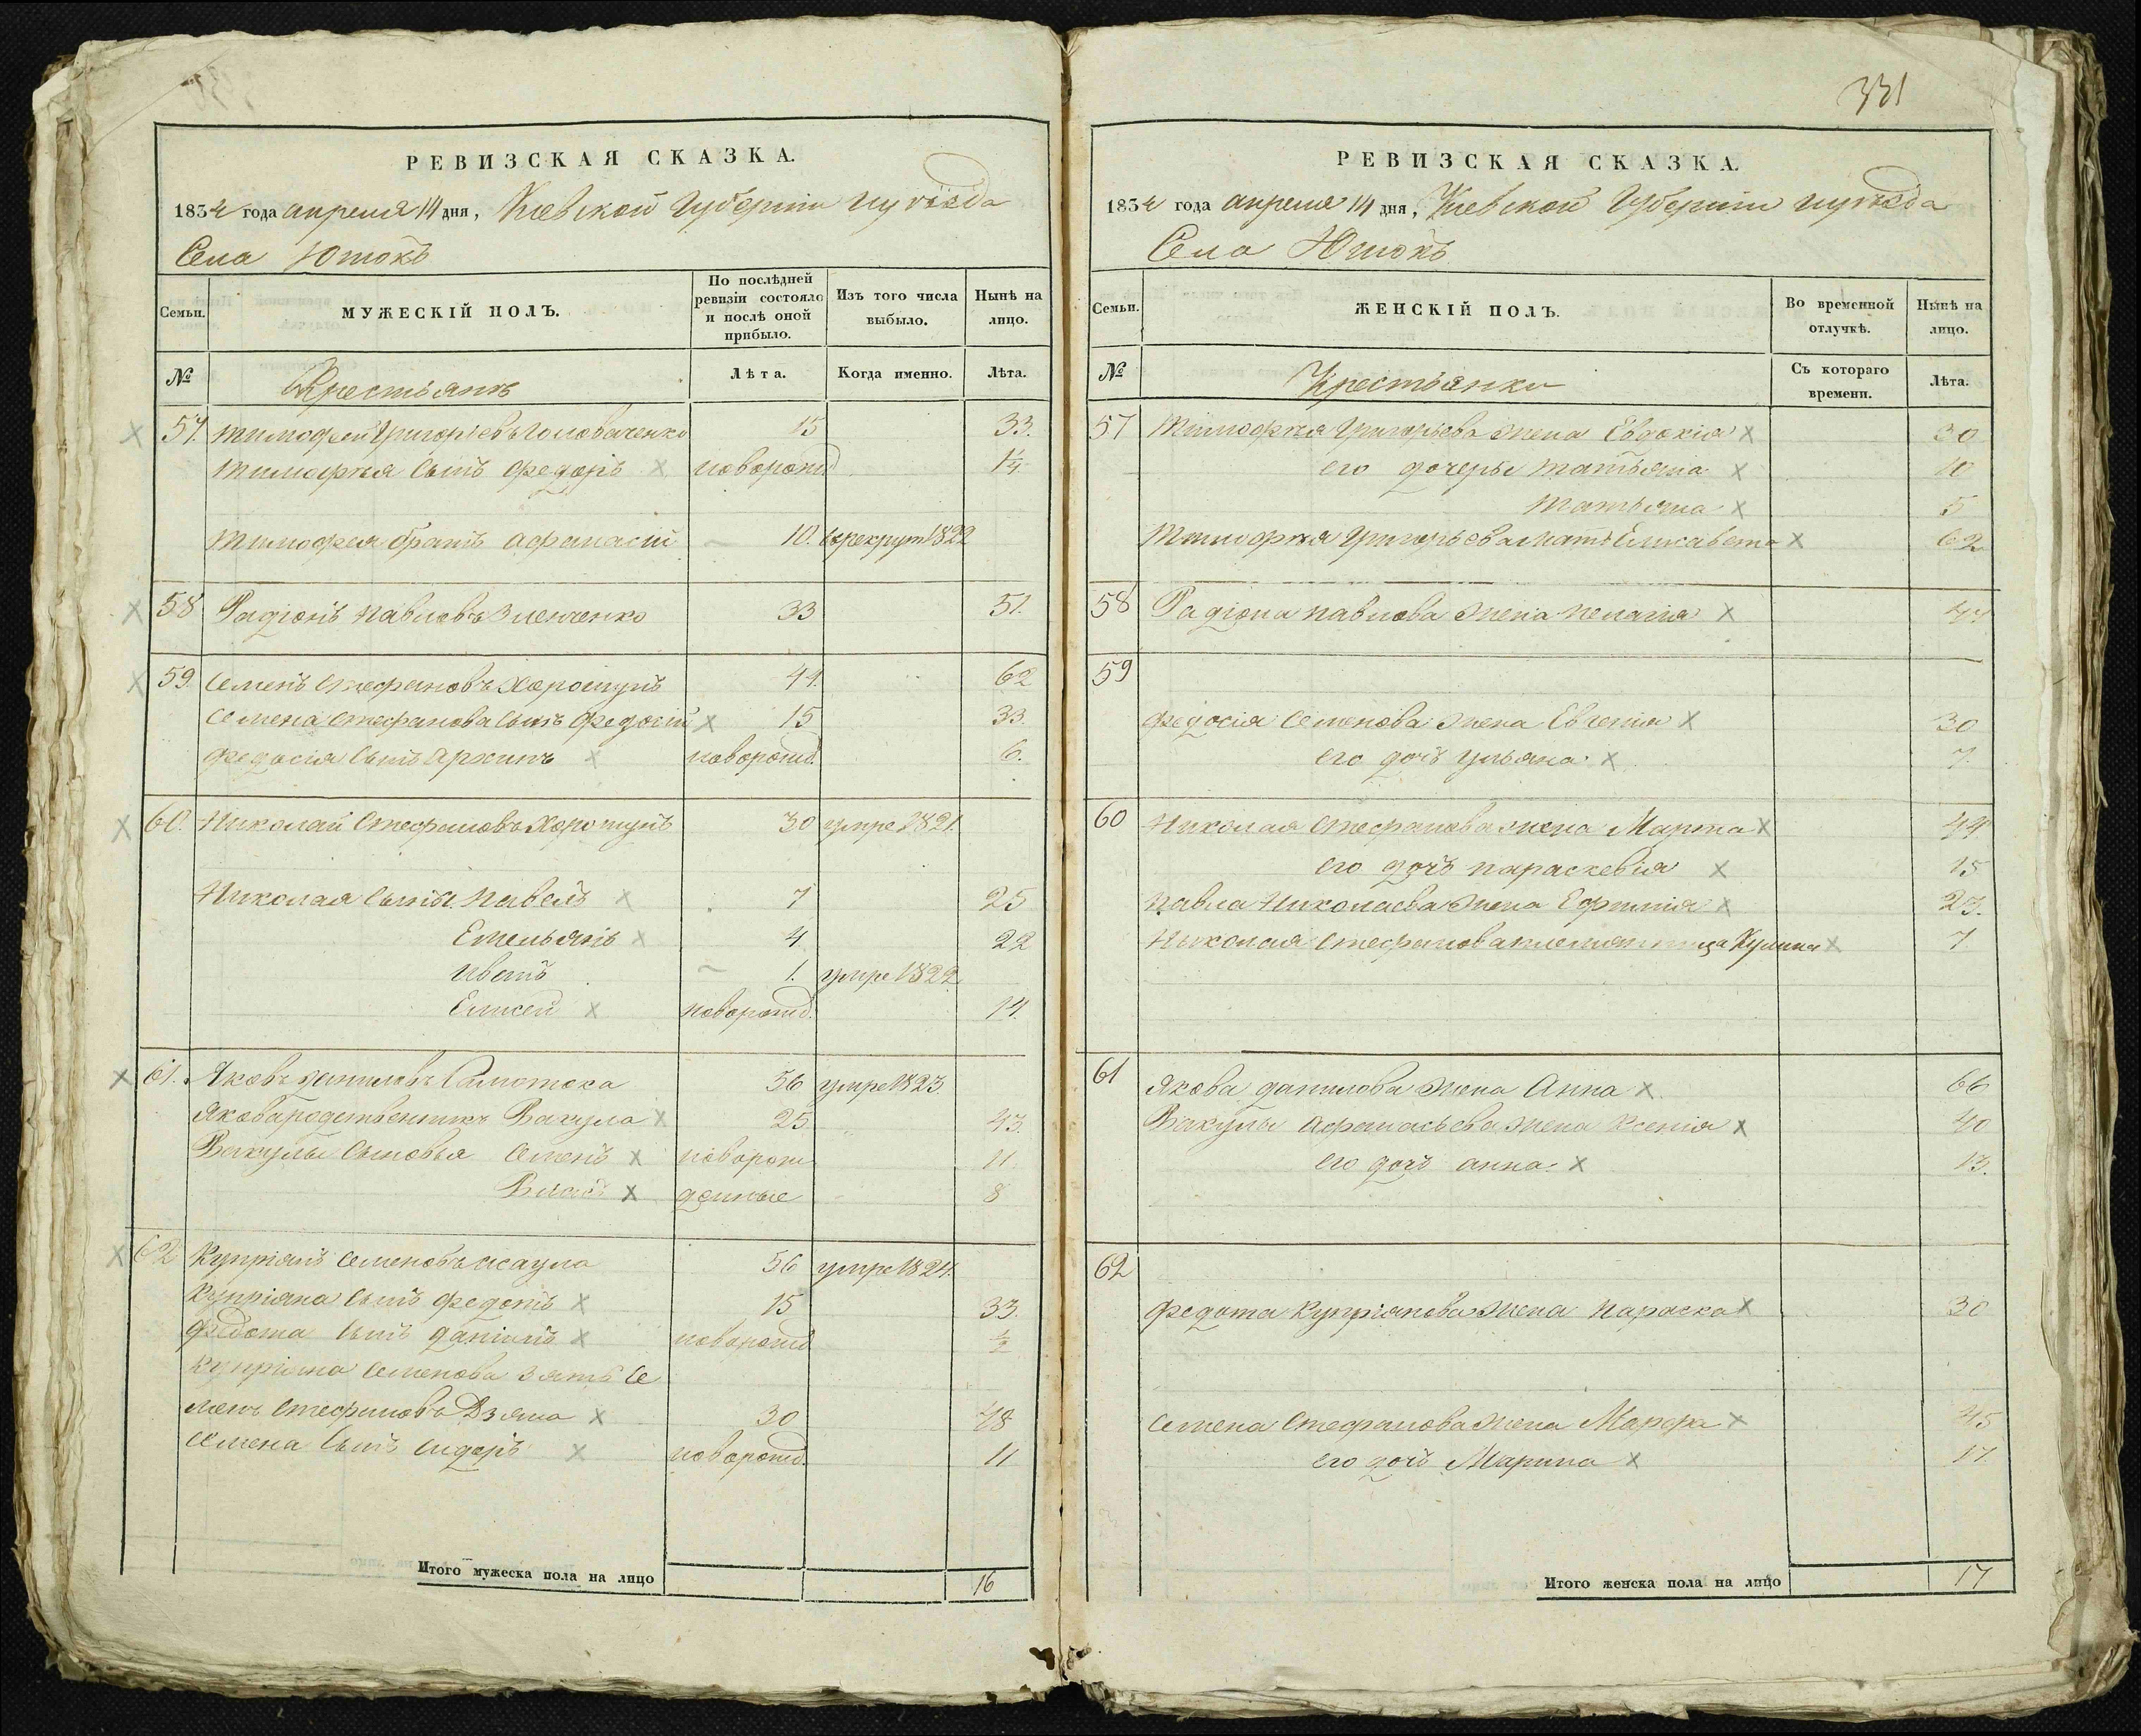 331
РЕВИЗСКАЯ СКАЗКА.
1834 года апреля 14 дня, Киевской Губернии и уѣзда
Села Ютокъ
Семьи.
МУЖЕСКІЙ ПОЛЪ.
По послѣдней ревизіи состояло и послѣ оной прибыло.
Изъ того числа выбыло.
Нынѣ на лицо.
№
Крестьянъ
Лѣта.
Когда именно.
Лѣта.
57. Тимофей Григорьевъ Головаченко 15 33.
Тимофея сынъ Федоръ новорожд
Тимофея братъ Афанасій 10. в рекрут 1822
58 Радіонъ Павловъ Зленченко 33 51.
59. Семенъ Стефановъ Хорошунъ 44. 62
Семена Стефанова сынъ Федосій 15 33.
Федосія сынъ Архипъ новорожд. 6.
60. Николай Стефановъ Хорошунъ 30 умре 1821.
Николая сыны. Павелъ 7 25
Емельянъ 4 22
Иванъ 1. умре 1822
Елисей новорожд. 14.
61. Яковъ Даниловъ Самотока 56 умре 1823.
Якова родственникъ Вакула 25 43.
Вакулы сыновья Семенъ новорож 11
Власъ денные 8
62 Купріянъ Семеновъ Исаула 56 умре 1824.
Купріяна сынъ Федотъ 15 33.
Федота сынъ Даніилъ новорожд ½
Купріяна Семенова зять Се
менъ Стефановъ Дзяма 30 48
Семена сынъ Сидоръ новорожд. 11
Итого мужеска пола на лицо 16
РЕВИЗСКАЯ СКАЗКА.
1834 года апреля 14 дня, Киевской Губернии и уѣзда
Села Ютокъ
Семьи.
ЖЕНСКІЙ ПОЛЪ.
Во временной отлучкѣ.
Нынѣ на лицо.
№
Крестьянки
Съ котораго времени.
Лѣта.
57 Тимофея Григорьева жена Евдокія 30
его дочеры Татьяна 10
Татьяна 5
Тимофея Григорьева мать Елисавета 62
58 Радіона Павлова жена Пелагія
59
Федосія Семенова жена Евгенія 30
его дочь Ульяна 7.
60 Николая Стефанова жена Марта 44
его дочь Параскевія 15
Павла Николаева жена Ефимія 23.
Николая Стефанова племянница Кулина 7
61 Якова Данилова жена Анна 66
Вакулы Афанасьева жена Ксенія 40
его дочь Анна 13.
62
Федота Купріянова жена Параска 30
Семена Стефанова жена Марфа 45
его дочь Марина 17.
Итого женска пола на лицо 17